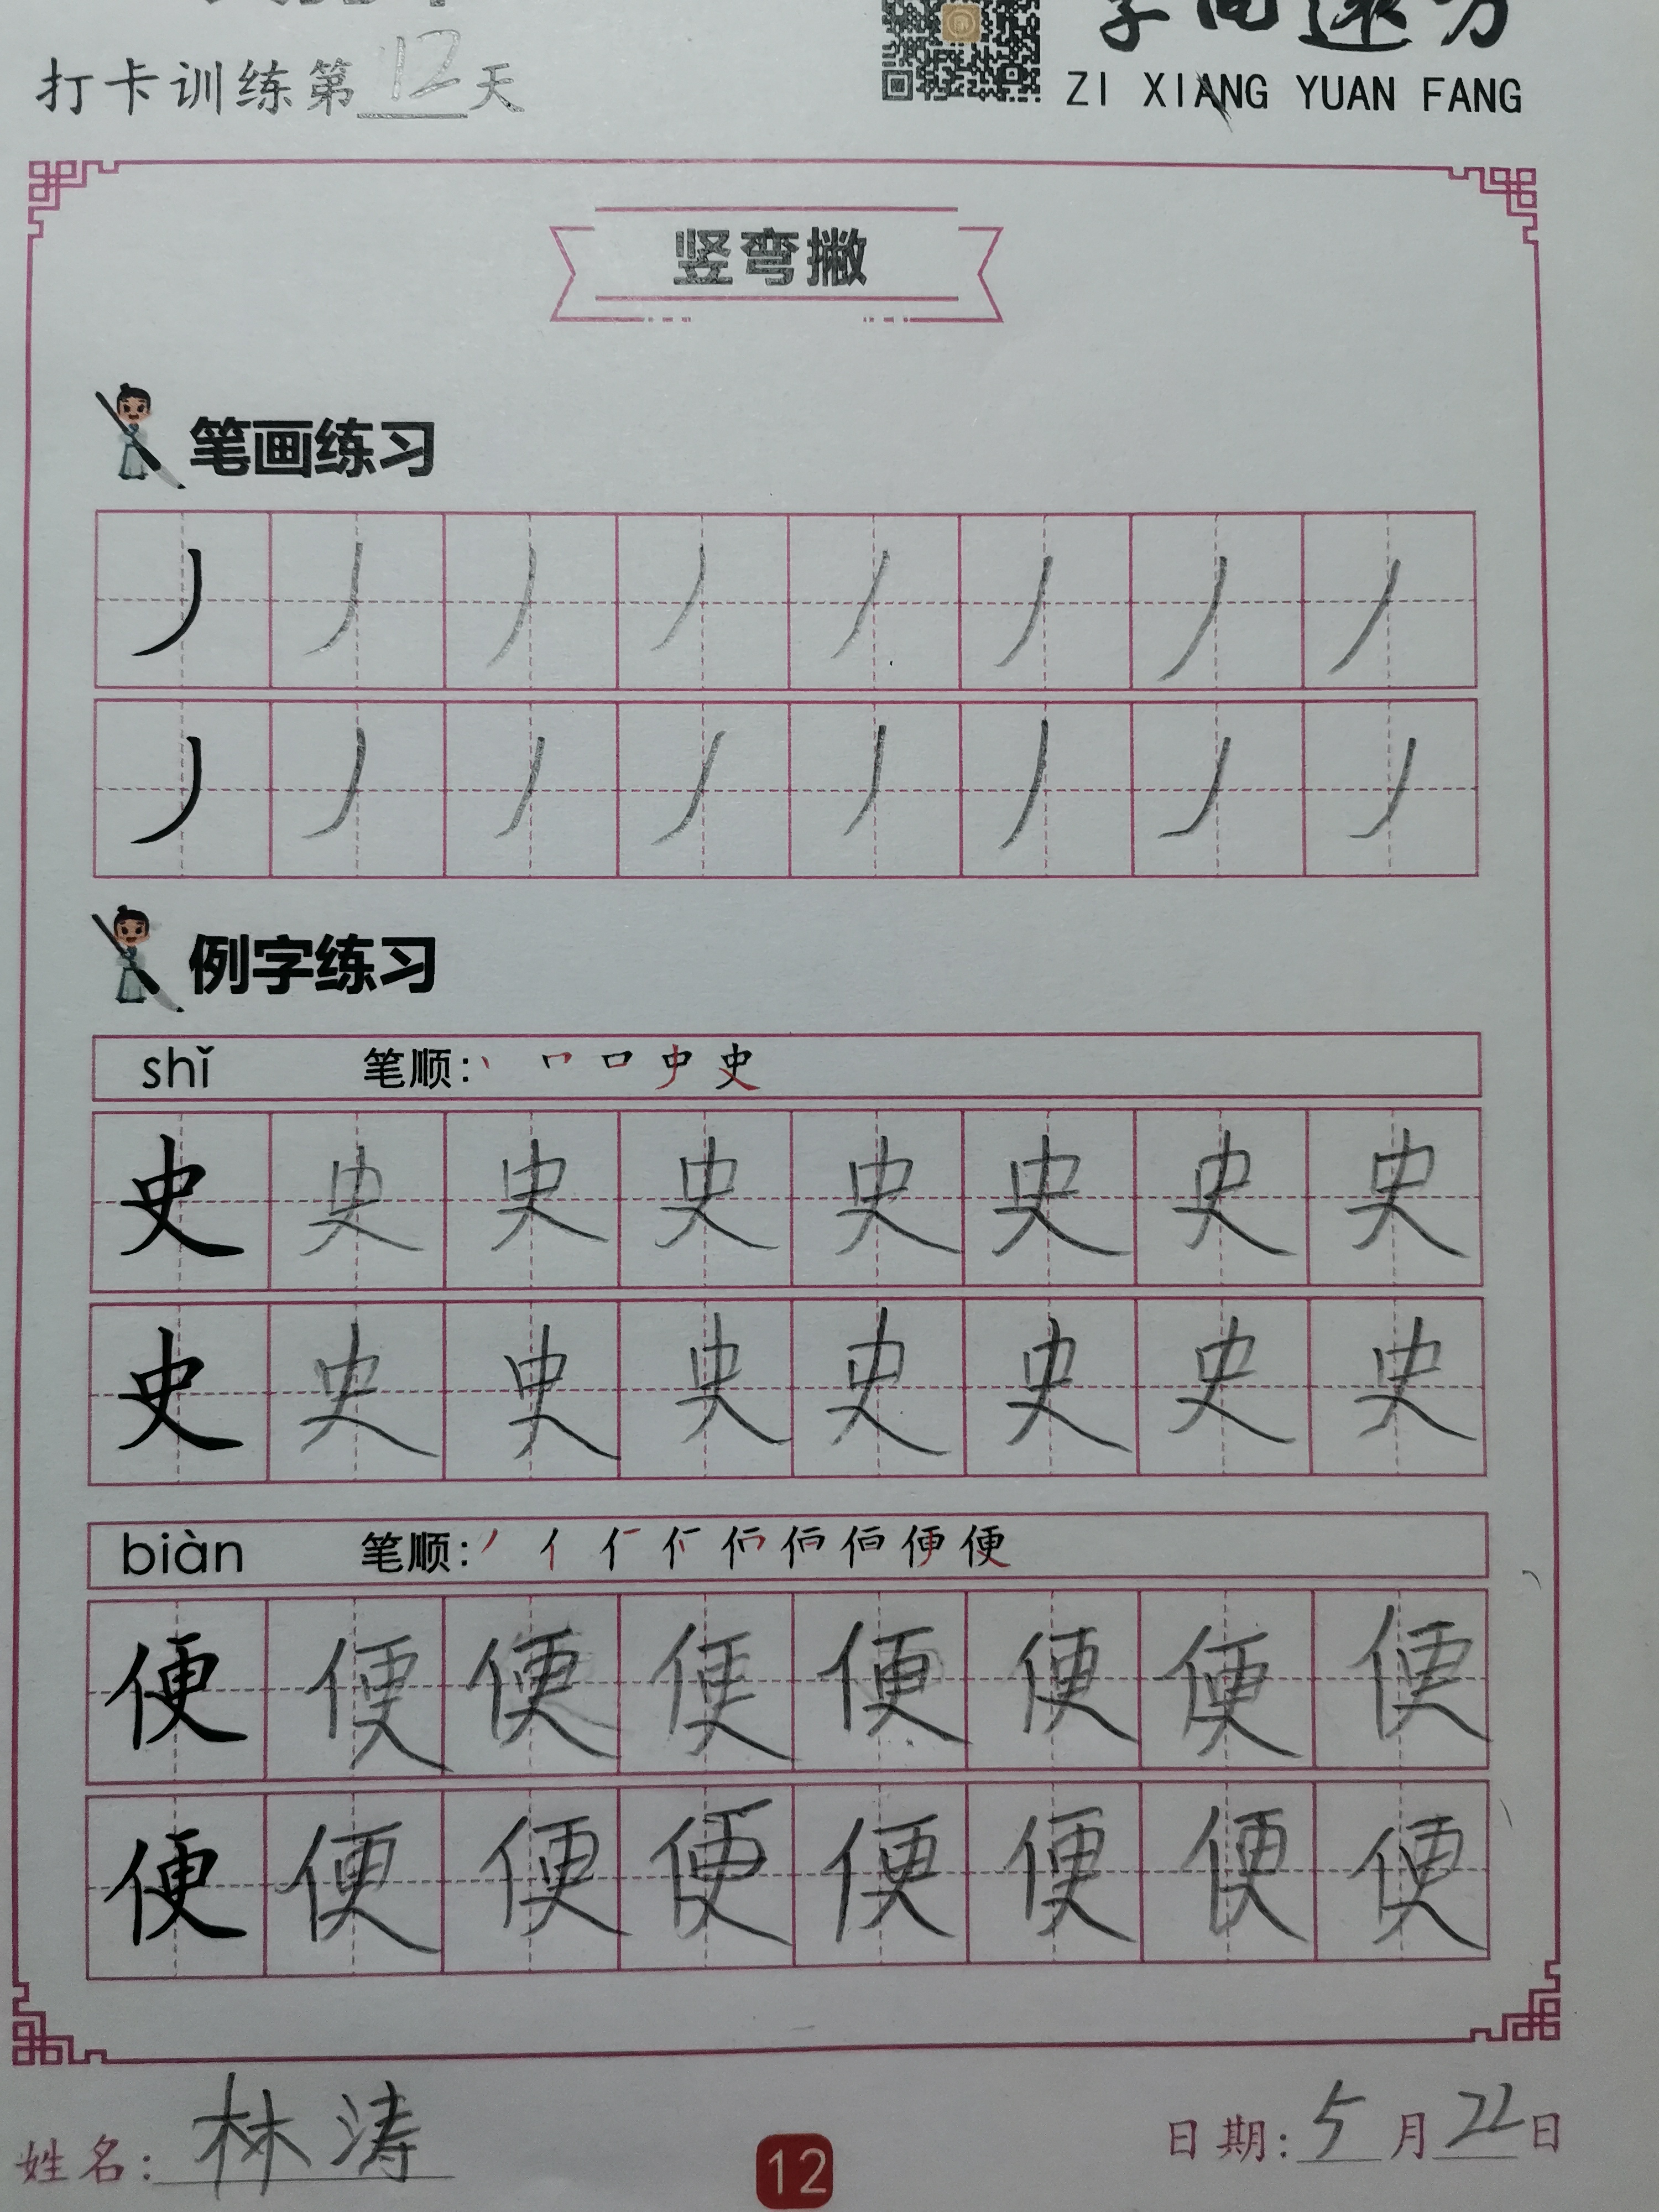 字向远方
打卡训练第12天
ZI XIANG YUAN FANG
竖弯撇
笔画练习
丿丿丿丿丿丿丿丿
丿丿丿丿丿丿丿丿
例字练习
shǐ 笔顺:
史史史史史史史史
史史史史史史史史
biàn 笔顺:
便便便便便便便便
便便便便便便便便
姓名: 林涛
12
日期: 5月22日